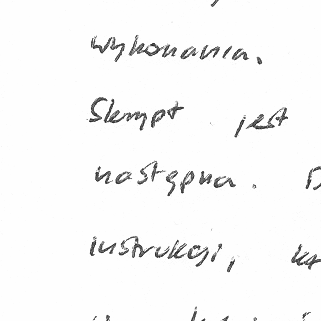 wykonania.
Skrypt jest
następna.
instrukcji,